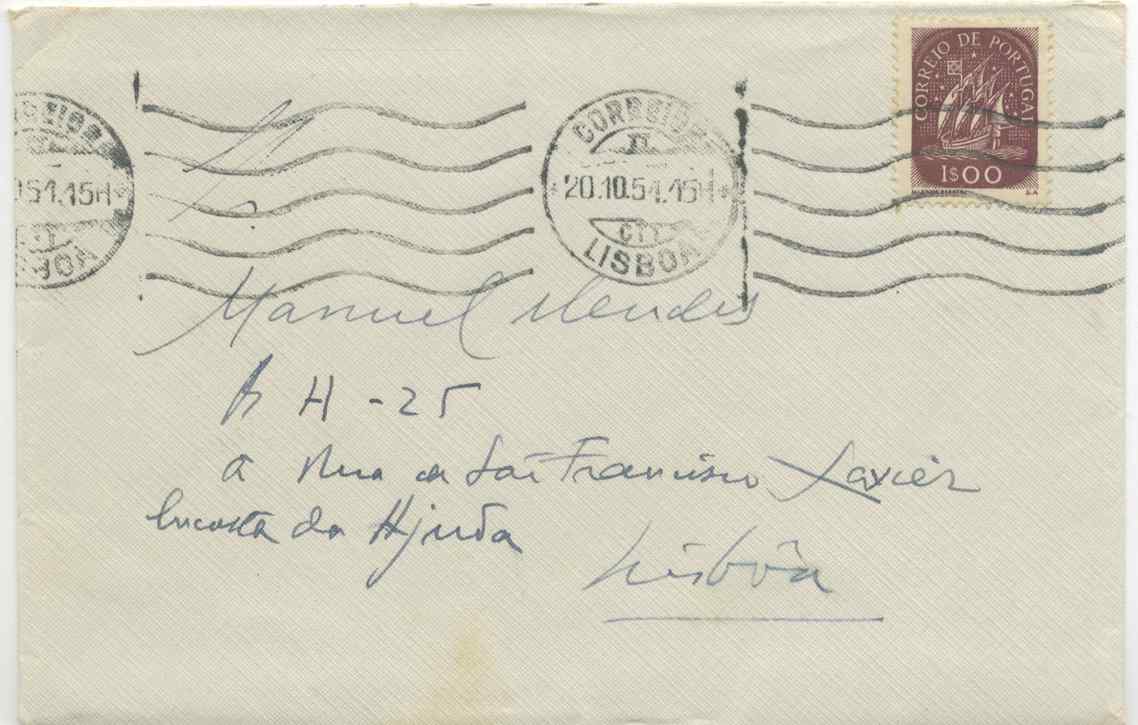 CORREIO DE PORTUGAL
1$00
CORREIOS
20.10.51.15H
CTT
LISBOA
CORREIOS
051.15H
CTT
Manuel Mendes
R H - 25
à Rua de São Francisco Xavier
Encosta da Ajuda
Lisbôa